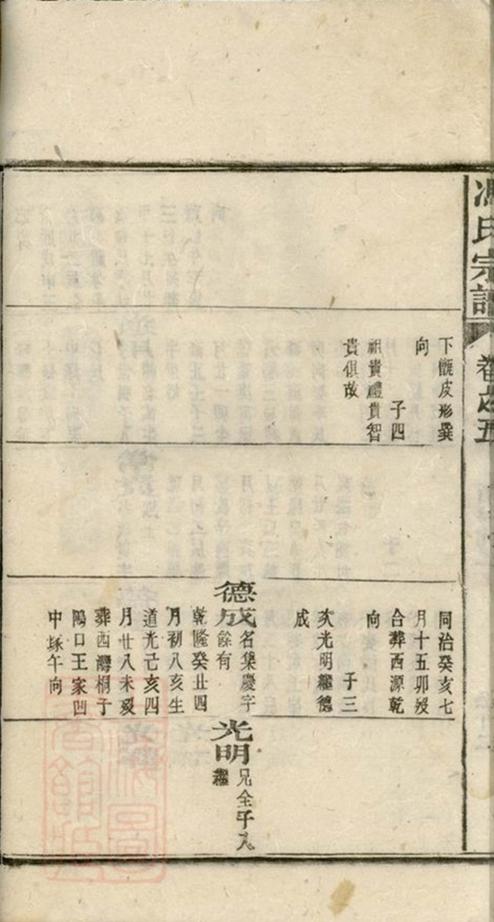 馮氏宗譜
卷之五
下皮形巽
向
子四
祖貴禮貴智
貴俱故
同治癸亥七
月十五卯歿
合葬西源乾
向
子三
亥光明繼德
成
德成名集慶字
餘有
乾隆癸丑四
月初八亥生
道光己亥四
月廿八未歿
葬西灣桐子
陽口王家凹
中塚午向
光明兄全子入
繼